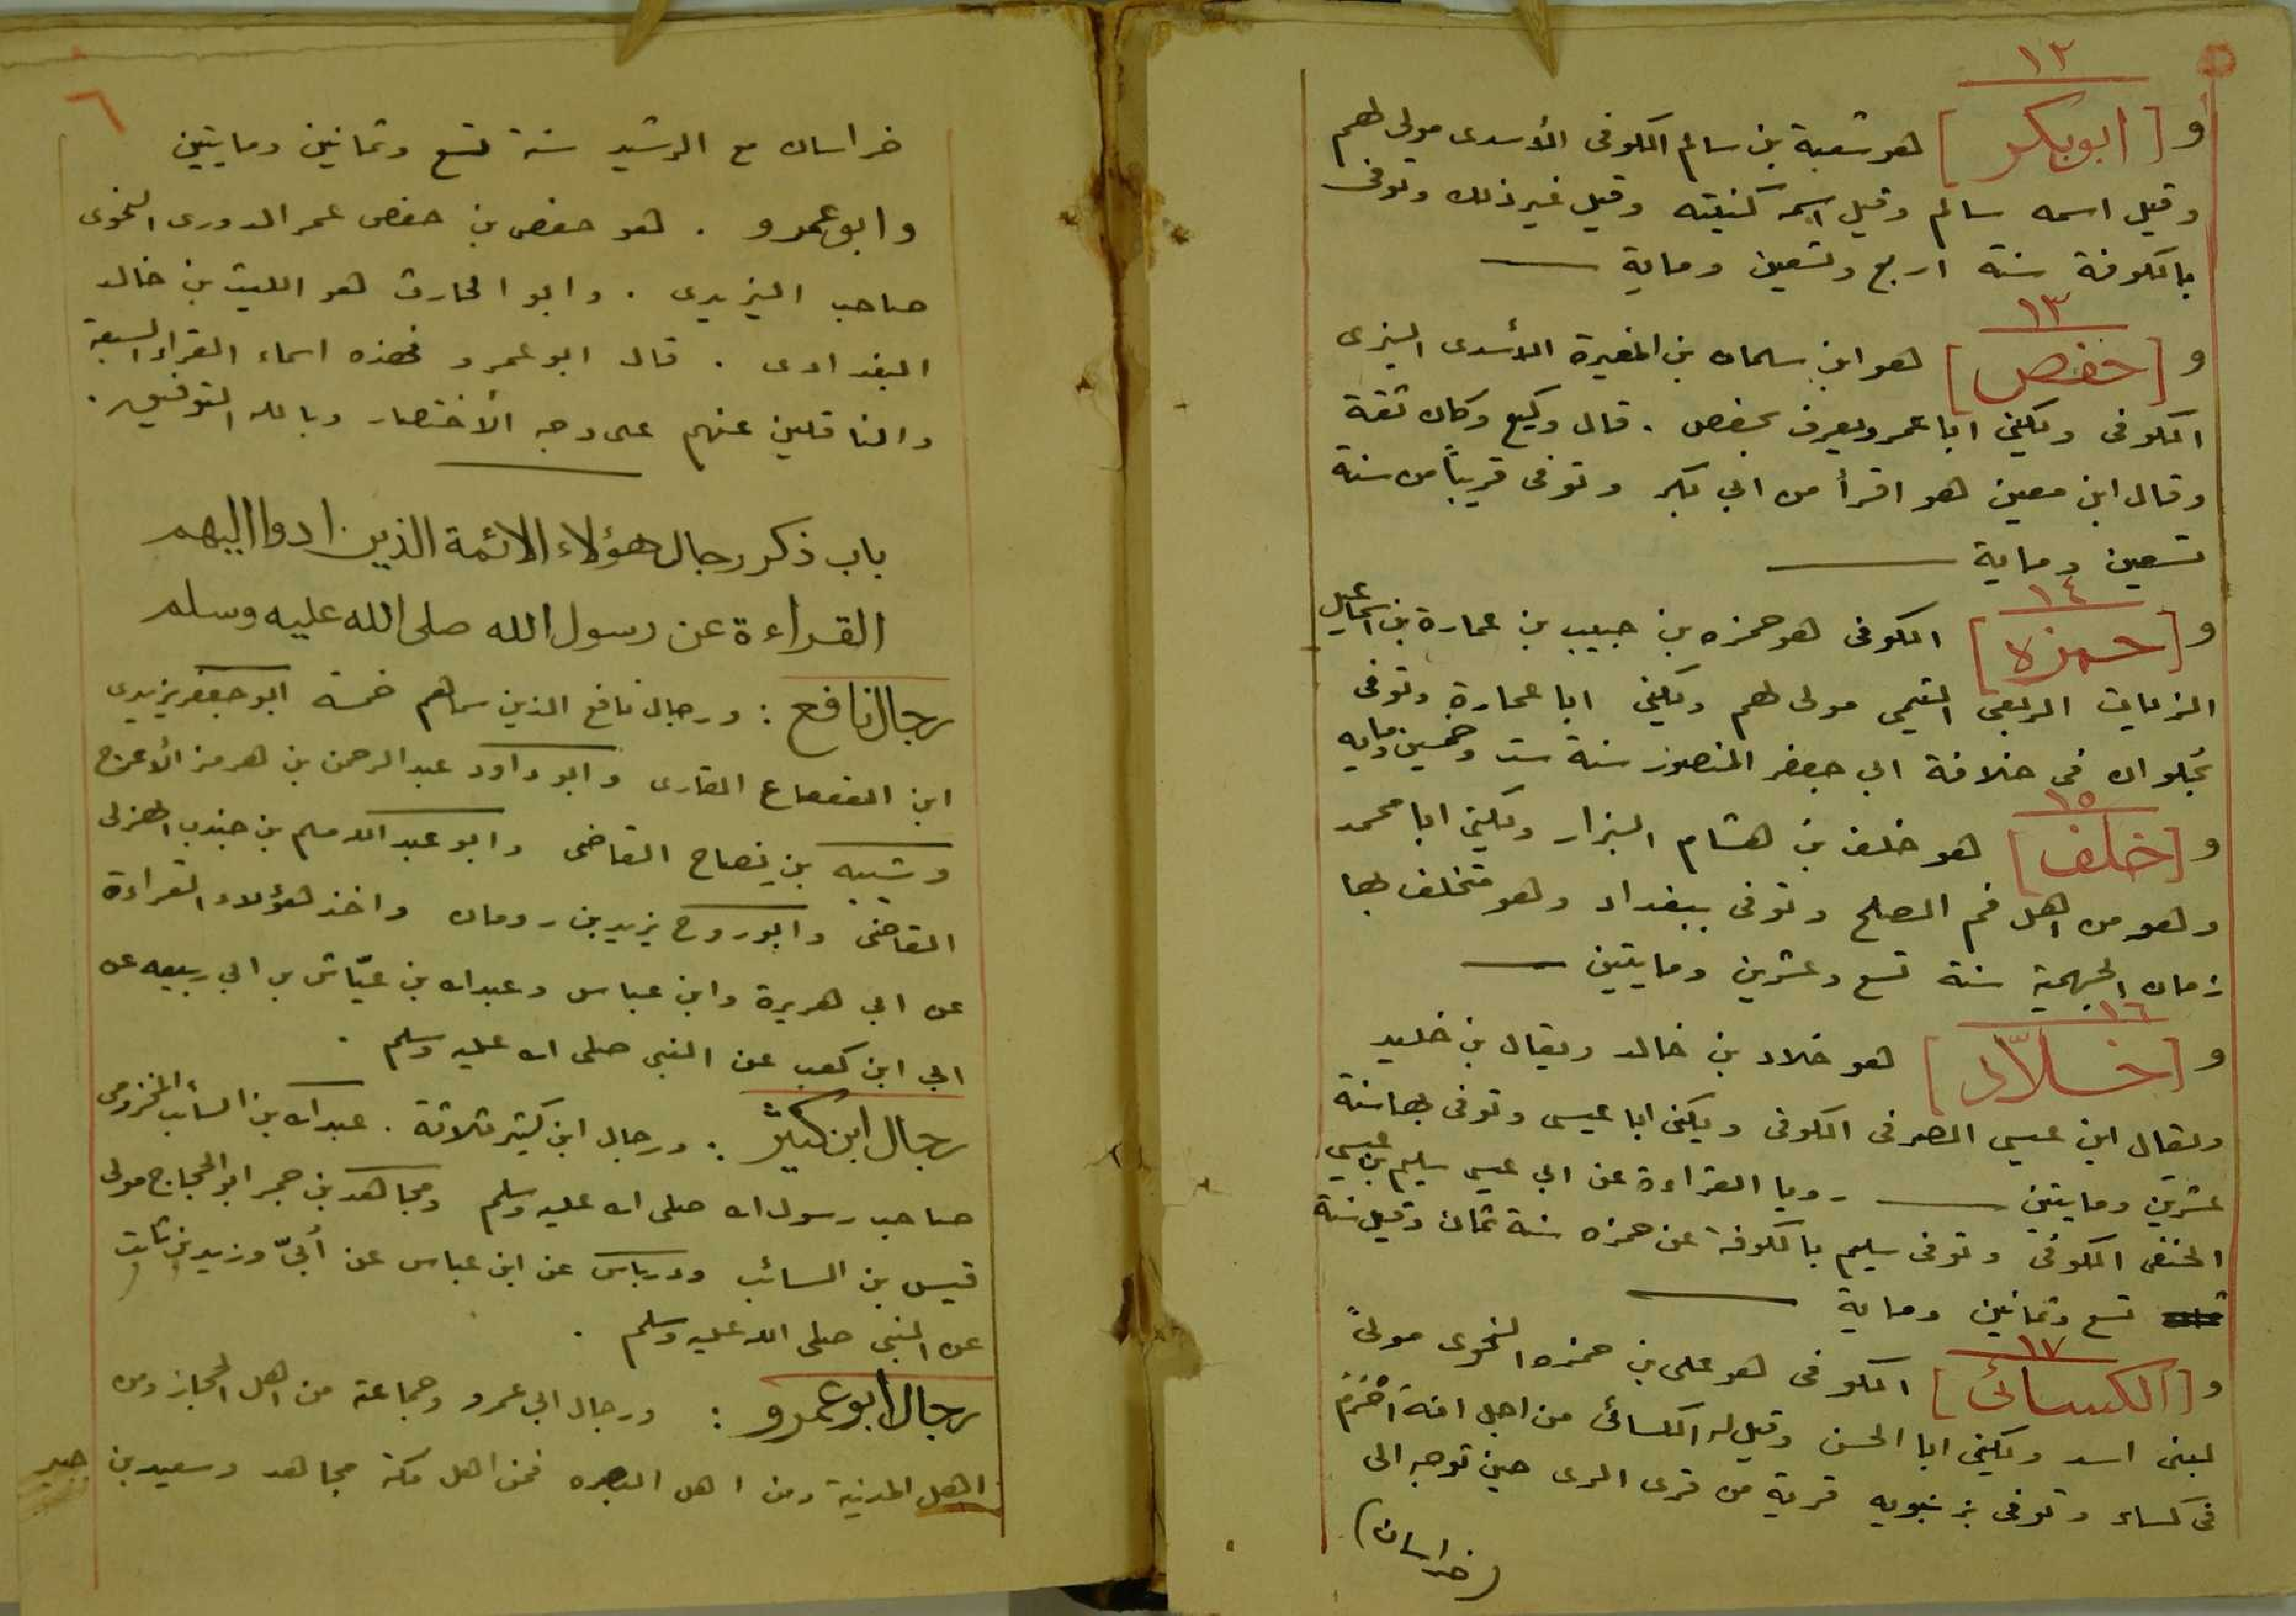 ١٢
و [ ابوبكر ] هو شعبة بن سالم الكوفى الأسدى مولى لهم
وقيل اسمه سالم وقيل اسمه كنيته وقيل غير ذلك وتوفى
بالكوفة سنة اربع وتسعين وماية
١٣
و [ حفص ] هو ابن سلمان بن المغيرة الأسدى البزى
الكوفى ويكنى ابا عمر ويعرف بحفص . قال وكيع وكان ثقة
وقال ابن معين هو اقرأ من ابي بكر وتوفى قريباً من سنة
تسعين وماية
١٤
و [ حمزه ] الكوفى هو حمزه بن حبيب بن عمارة بن اسماعيل
الزيات الربعى التيمى مولى لهم ويكنى ابا عمارة وتوفى
بحلوان فى خلافة ابي جعفر المنصور سنة ست وخمسين ومايه
١٥
و [ خلف ] هو خلف بن هشام البزار ويكنى ابا محمد
وهو من اهل فم الصلح وتوفى ببغداد وهو متخلف بها
زمان الجهمية سنة تسع وعشرين ومايتين
١٦
و [ خلاّد ] هو خلاد بن خالد ويقال بن خليد
ويقال ابن عيسى الصرفى الكوفى ويكنى ابا عيسى وتوفى بها سنة
عشرين ومايتين رويا القراءة عن ابي عيسى سليم بن عيسى
الحنفى الكوفى وتوفى سليم بالكوفة عن حمزه سنة ثمان وقيل سنة
تسع وثمانين وماية
١٧
و [ الكسائى ] الكوفى هو على بن حمزه النحوى مولىً
لبنى اسد ويكنى ابا الحسن وقيل له الكسائى من اجل انه احْرَمَ
فى كساء وتوفى بزنبويه قرية من قرى الرى حين توجه الى
(خراسان)
٦
خراسان مع الرشيد سنة تسع وثمانين ومايتين
وابوعمرو . هو حفص بن حفص عمر الدورى النحوى
صاحب اليزيدى . وابو الحارث هو الليث بن خالد
البغدادى . قال ابو عمرو فهذه اسماء القراء السبعة
والناقلين عنهم على وجه الأختصار وبالله التوفيق .
باب ذكر رجال هؤلاء الائمة الذين ادوا اليهم
القراءة عن رسول الله صلى الله عليه وسلم
رجال نافع : ورجال نافع الذين سماهم خمسة ابو جعفر يزيدى
ابن القعقاع القارى وابو داود عبد الرحمن بن هرمز الأعرج
وشيبه بن نصاح القاضى وابو عبد الله مسلم بن جندب الهزلى
القاضى وابو روح يزيد بن رومان واخذ هؤلاء القراءة
عن ابي هريرة وابن عباس وعبدالله بن عيّاش بن ابي ربيعه عن
ابي ابن كعب عن النبى صلى الله عليه وسلم .
رجال ابن كثير : ورجال ابن كثير ثلاثة . عبدالله بن السائب المخزومى
صاحب رسول الله صلى الله عليه وسلم ومجاهد بن حجر ابو الحجاج مولى
قيس بن السائب ودرباس عن ابن عباس عن أبىّ وزيد بن ثابت
عن النبى صلى الله عليه وسلم .
رجال ابوعمرو : ورجال ابي عمرو وجماعة من اهل الحجاز ومن
اهل المدينة ومن اهل البصره فمن اهل مكة مجاهد وسعيد بن جبير